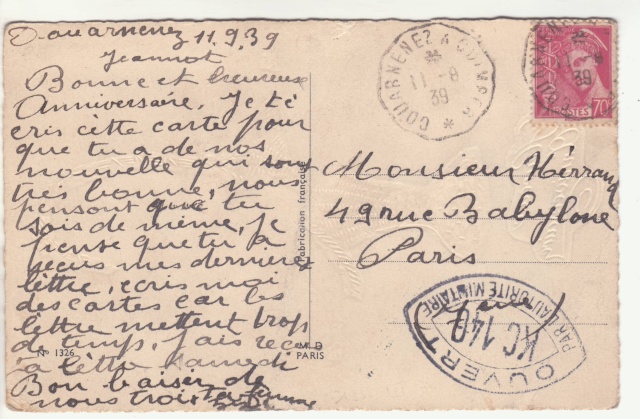 Douarnenez 11.9.39
Jeannot
Bonne et heureuse
Anniversaire. Je té
cris cette carte pour
que tu a de nos
nouvelle qui sont
très bonne, nous
pensont que tu
sois de même, je
pense que tu a
reçus mes dernière
lettre, ecris moi
des cartes car les
lettre mettent trop
de temps, j'ais reçu
ta lettre samedi
Bon baiser de
nous trois ta femme
Nº 1326
M. D
PARIS
Fabrication française
DOUARNENEZ A QUIMPER
11-9
39
POSTES
70c
Monsieur Hérrang
49 rue Babylone
Paris
OUVERT
PAR L'AUTORITÉ MILITAIRE
KC 140